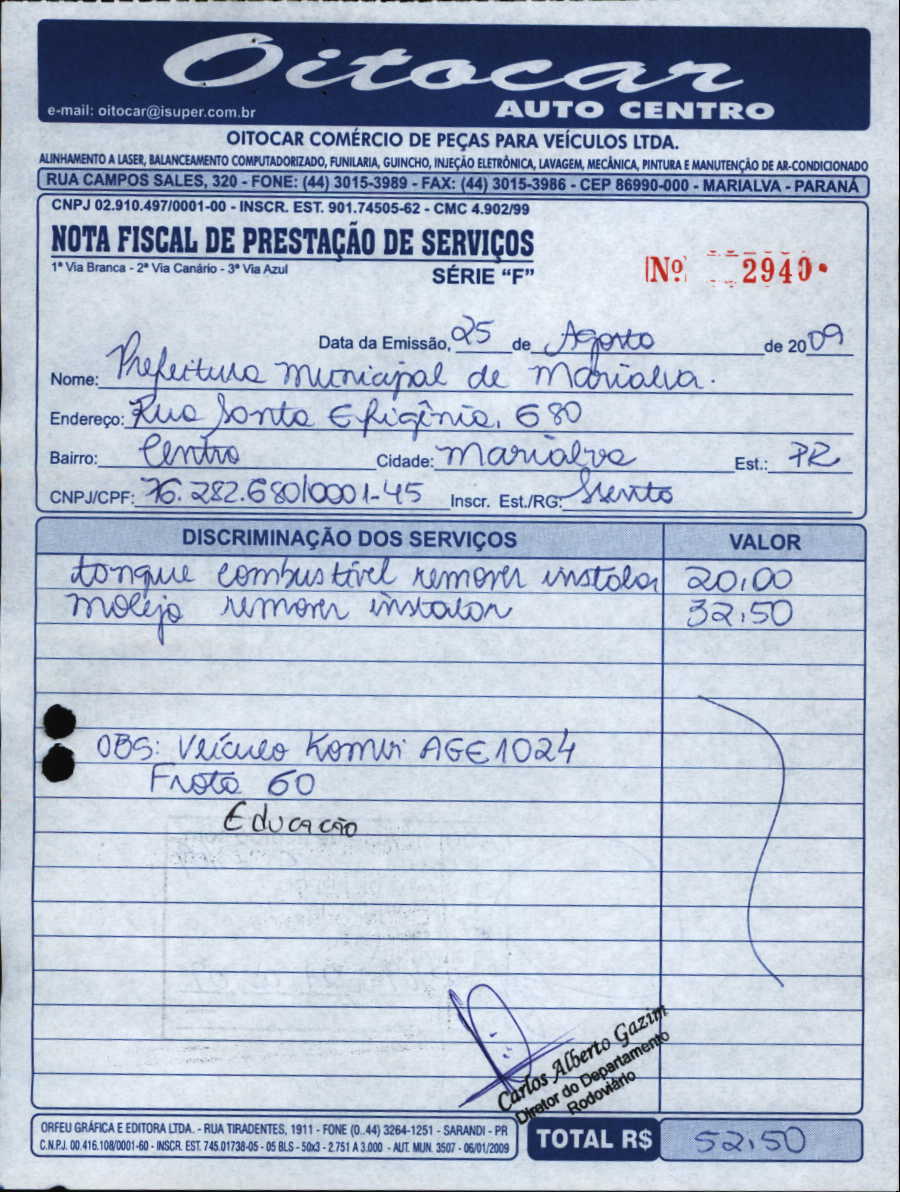 Oitocar
AUTO CENTRO
e-mail: oitocar@isuper.com.br
OITOCAR COMÉRCIO DE PEÇAS PARA VEÍCULOS LTDA.
ALINHAMENTO A LASER, BALANCEAMENTO COMPUTADORIZADO, FUNILARIA, GUINCHO, INJEÇÃO ELETRÔNICA, LAVAGEM, MECÂNICA, PINTURA E MANUTENÇÃO DE AR-CONDICIONADO
RUA CAMPOS SALES, 320 - FONE: (44) 3015-3989 - FAX: (44) 3015-3986 - CEP 86990-000 - MARIALVA - PARANÁ
CNPJ 02.910.497/0001-00 - INSCR. EST. 901.74505-62 - CMC 4.902/99
NOTA FISCAL DE PRESTAÇÃO DE SERVIÇOS
1ª Via Branca - 2ª Via Canário - 3ª Via Azul
SÉRIE "F"
Nº 2940
Data da Emissão, 25 de Agosto de 2009
Nome: Prefeitura Municipal de Marialva.
Endereço: Rua Santa Efigênia, 680
Bairro: Centro Cidade: Marialva Est.: PR
CNPJ/CPF: 76.282.680/0001-45 Inscr. Est./RG: Isento
DISCRIMINAÇÃO DOS SERVIÇOS VALOR
tanque combustível remover instalar 20,00
molejo remover instalar 32,50
OBS: Veículo Kombi AGE1024
Frota 60
Educação
Carlos Alberto Gazim
Diretor do Departamento
Rodoviário
ORFEU GRÁFICA E EDITORA LTDA. - RUA TIRADENTES, 1911 - FONE (0..44) 3264-1251 - SARANDI - PR
C.N.P.J. 00.416.108/0001-60 - INSCR. EST. 745.01738-05 - 05 BLS - 50x3 - 2.751 A 3.000 - AUT. MUN. 3507 - 06/01/2009
TOTAL R$ 52,50